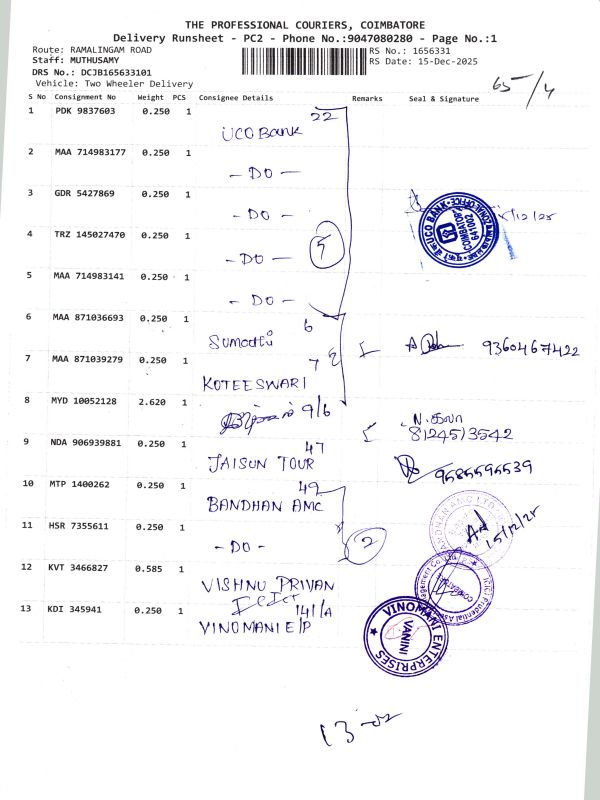 THE PROFESSIONAL COURIERS, COIMBATORE
Delivery Runsheet - PC2 - Phone No.:9047080280 - Page No.:1
Route: RAMALINGAM ROAD
Staff: MUTHUSAMY
DRS No.: DCJB165633101
Vehicle: Two Wheeler Delivery
RS No.: 1656331
RS Date: 15-Dec-2025
65/4
S No Consignment No Weight PCS Consignee Details Remarks Seal & Signature
1 PDK 9837603 0.250 1 UCO Bank 22
2 MAA 714983177 0.250 1 - DO -
3 GDR 5427869 0.250 1 - DO -
4 TRZ 145027470 0.250 1 - DO - 5
5 MAA 714983141 0.250 1 - DO -
UCO BANK COIMBATORE 641002 ZONAL OFFICE
15/12/25
6 MAA 871036693 0.250 1 Sumathi 6 9360467422
7 MAA 871039279 0.250 1 KOTEESWARI 7
8 MYD 10052128 2.620 1 9/6 N. 8124513542
9 NDA 906939881 0.250 1 JAISUN TOUR 47 9585595539
10 MTP 1400262 0.250 1 BANDHAN AMC 49
11 HSR 7355611 0.250 1 - DO - 2
BANDHAN AMC LTD
15/12/25
12 KVT 3466827 0.585 1 VISHNU PRIYAN
ICICI
ICICI Prudential Asset Management Co Ltd
13 KDI 345941 0.250 1 VINOMANI E/P 141/A
VINOMANI ENTERPRISES VANINI
13